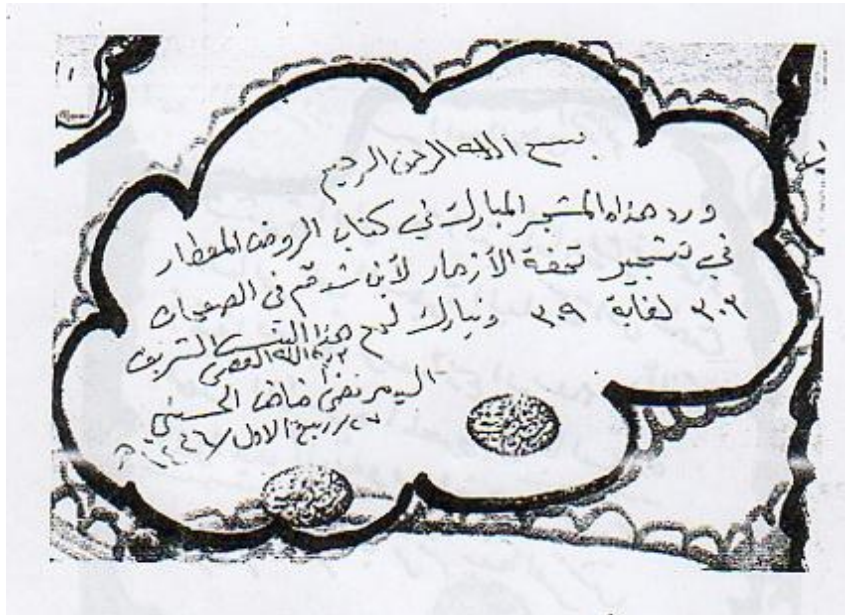 بسم الله الرحمن الرحيم
ورد هذا المشجر المبارك في كتاب الروض المعطار
في تشجير تحفة الأزهار لأبن شدقم في الصفحات
٣٠٣ لغاية ٣٠٩ ونبارك لهم هذا النسب الشريف
خادم
الحسني
٢٧/ربيع الاول/١٤٢٦